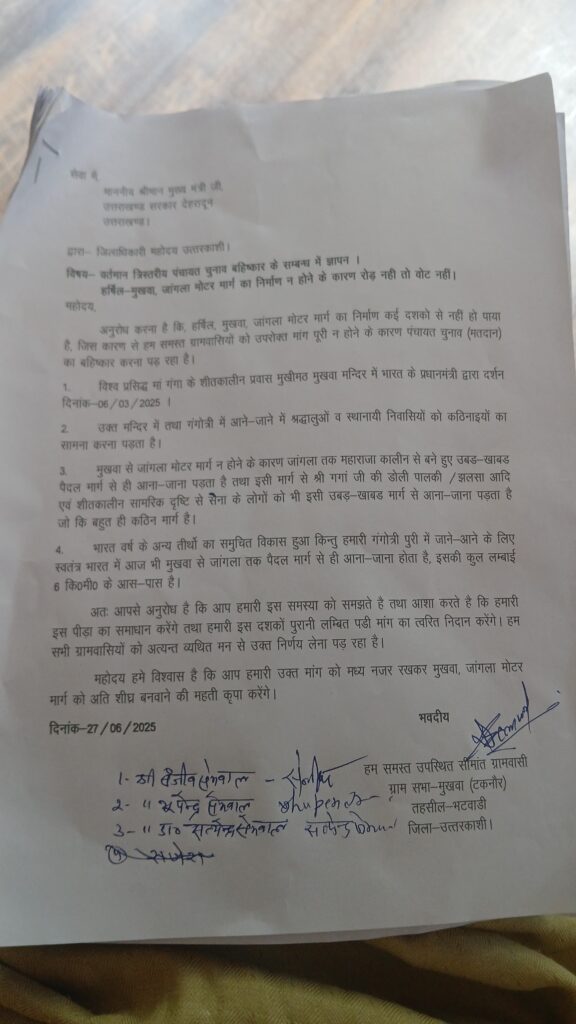 सेवा में,
माननीय श्रीमान मुख्य मंत्री जी,
उत्तराखण्ड सरकार देहरादून
उत्तराखण्ड।
द्वारा– जिलाधिकारी महोदय उत्तरकाशी।
विषय– वर्तमान त्रिस्तरीय पंचायत चुनाव बहिष्कार के सम्बन्ध में ज्ञापन ।
हर्षिल–मुखवा, जांगला मोटर मार्ग का निर्माण न होने के कारण रोड़ नही तो वोट नहीं।
महोदय,
अनुरोध करना है कि, हर्षिल, मुखवा, जांगला मोटर मार्ग का निर्माण कई दशको से नहीं हो पाया
है, जिस कारण से हम समस्त ग्रामवासियों को उपरोक्त मांग पूरी न होने के कारण पंचायत चुनाव (मतदान)
का बहिष्कार करना पड़ रहा है।
1. विश्व प्रसिद्व मां गंगा के शीतकालीन प्रवास मुखीमठ मुखवा मन्दिर में भारत के प्रधानमंत्री द्वारा दर्शन
दिनांक–06/03/2025 ।
2. उक्त मन्दिर में तथा गंगोत्री में आने–जाने में श्रद्धालुओं व स्थानायी निवासियों को कठिनाइयों का
सामना करना पड़ता है।
3. मुखवा से जांगला मोटर मार्ग न होने के कारण जांगला तक महाराजा कालीन से बने हुए उबड–खाबड
पैदल मार्ग से ही आना–जाना पड़ता है तथा इसी मार्ग से श्री गगां जी की डोली पालकी /झलसा आदि
एवं शीतकालीन सामरिक दृष्टि से सेना के लोगों को भी इसी उबड़–खाबड मार्ग से आना–जाना पड़ता है
जो कि बहुत ही कठिन मार्ग है।
4. भारत वर्ष के अन्य तीर्थो का समुचित विकास हुआ किन्तु हमारी गंगोत्री पुरी में जाने–आने के लिए
स्वतंत्र भारत में आज भी मुखवा से जांगला तक पैदल मार्ग से ही आना–जाना होता है, इसकी कुल लम्बाई
6 कि0मी0 के आस–पास है।
अतः आपसे अनुरोध है कि आप हमारी इस समस्या को समझते है तथा आशा करते है कि हमारी
इस पीड़ा का समाधान करेंगे तथा हमारी इस दशकों पुरानी लम्बित पडी मांग का त्वरित निदान करेंगे। हम
सभी ग्रामवासियों को अत्यन्त व्यथित मन से उक्त निर्णय लेना पड़ रहा है।
महोदय हमे विश्वास है कि आप हमारी उक्त मांग को मध्य नजर रखकर मुखवा, जांगला मोटर
मार्ग को अति शीघ्र बनवाने की महती कृपा करेंगे।
दिनांक–27/06/2025
भवदीय
हम समस्त उपस्थित सीमांत ग्रामवासी
ग्राम सभा–मुखवा (टकनौर)
तहसील–भटवाडी
जिला–उत्तरकाशी।
1- श्री संजीव सेमवाल -
2- " भूपेन्द्र सेमवाल
3- " डा० सत्येन्द्र सेमवाल